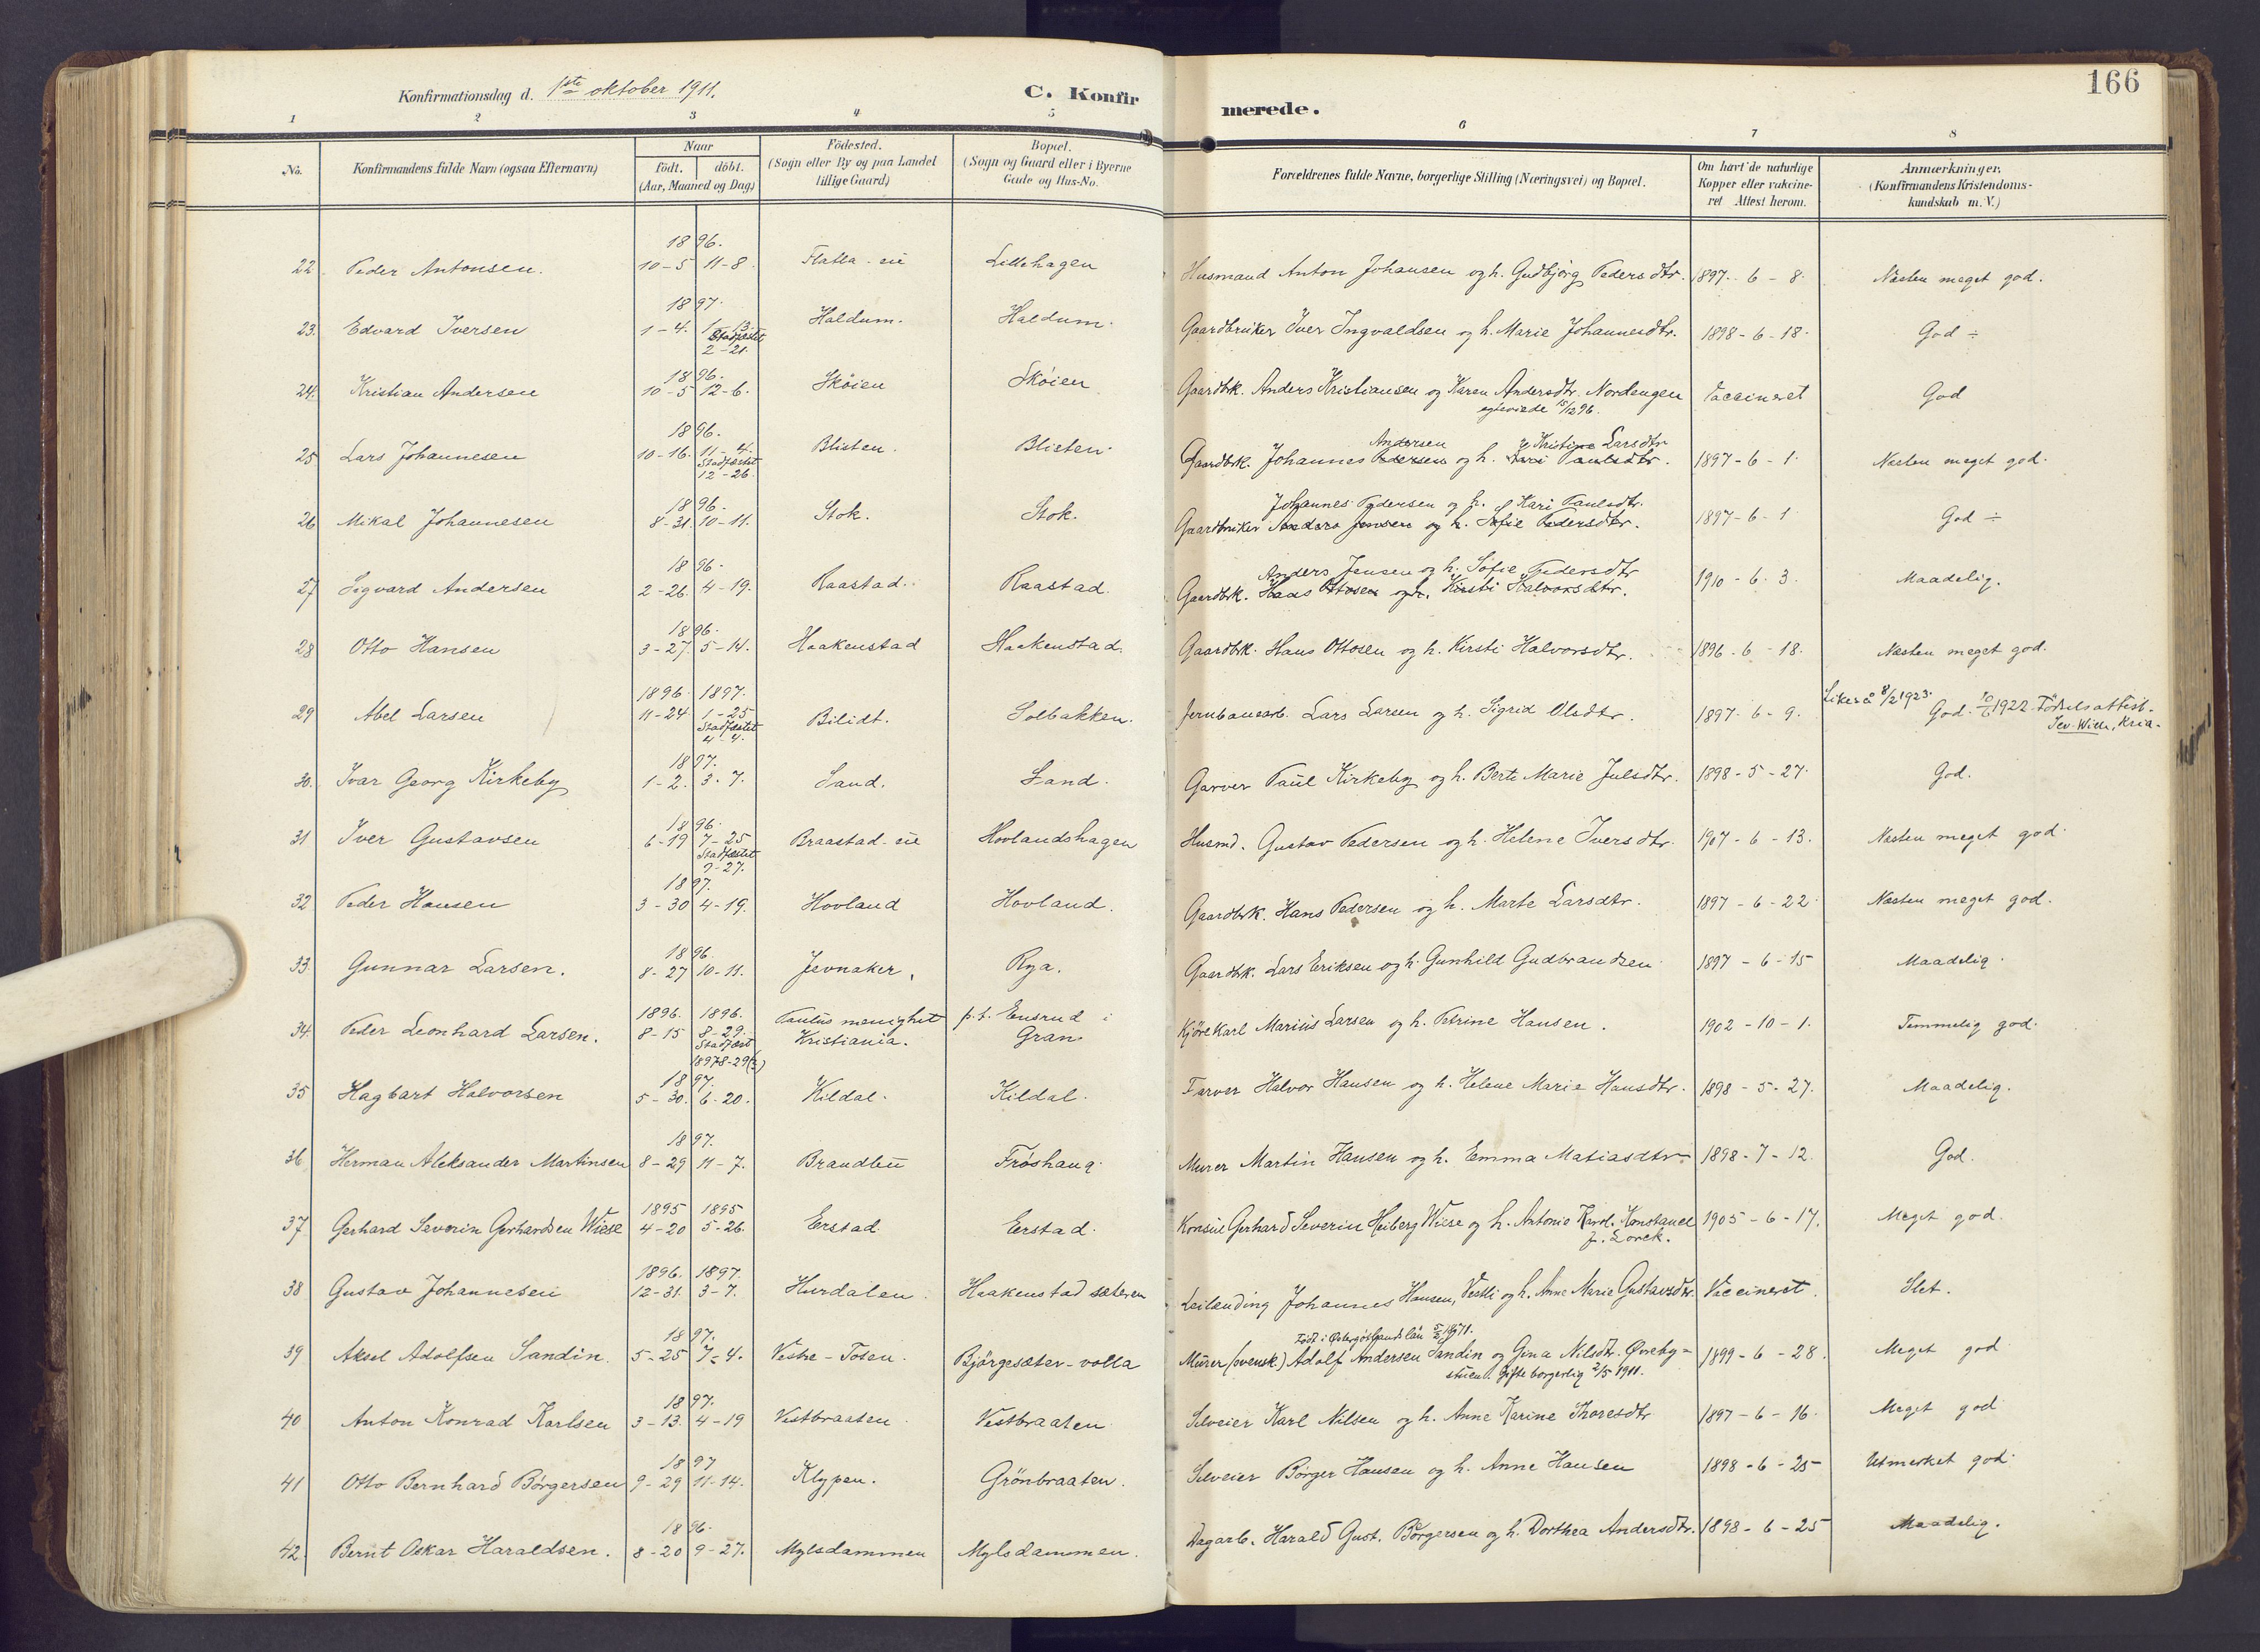 166
Konfirmationsdag d. 1ste oktober 1911.
C. Konfirmerede.
1 2 3 4 5 6 7 8
No. Konfirmandens fulde Navn (ogsaa Efternavn) Naar födt. döbt. (Aar, Maaned og Dag) Födested. (Sogn eller By og paa Landet tillige Gaard) Bopæl. (Sogn og Gaard eller i Byerne Gade og Hus-No. Forældrenes fulde Navne, borgerlige Stilling (Næringsvei) og Bopæl. Om havt de naturlige Kopper eller vakcineret Attest herom. Anmærkninger. (Konfirmandens Kristendomskundskab m. V.)
1896.
22. Peder Antonsen. 10-5 11-8. Flatla-eie Lillehagen Husmand Anton Johansen og h. Gudbjörg Pedersdtr. 1897-6-8. Næsten meget god.
1897.
23. Edvard Iversen 1-4. 1-13. Stadfæstet 2-21. Haldum. Haldum. Gaardbruker Iver Ingvaldsen og h. Marie Johannesdtr. 1898-6-18. God ÷
1896.
24. Kristian Andersen 10-5 12-6. Sköien Sköien Gaardbk. Anders Kristiansen og Karen Andersdtr. Nordengen Vaccineret God
egteviede 15/12 96.
1896.
Andersen Kristine Larsdtr
25 Lars Johannesen 10-16. 11-4. Stadfæstet 12-26. Blisten. Blisten. Gaardbrk. Johannes Pedersen og h. Kari Paulsdtr. 1897-6-1. Næsten meget god.
1896.
Johannes Pedersen og h. Kari Paulsdtr.
26 Mikal Johannesen 8-31. 10-11. Stok. Stok. Gaardbruker Anders Jensen og h. Sofie Pedersdtr. 1897-6-1 God ÷
1896.
Anders Jensen og h. Sofie Pedersdtr
27 Sigvard Andersen 2-26. 4-19. Raastad. Raastad. Gaardbk. Hans Ottosen og h. Kirsti Halvorsdtr. 1910-6-3. Maadelig.
1896.
28 Otto Hansen 3-27. 5-14. Haakenstad Haakenstad. Gaardbk. Hans Ottosen og h. Kirsti Halvorsdtr. 1896-6-18. Næsten meget god.
1896. 1897.
29 Abel Larsen 11-24 1-25 Stadfæstet 4-4. Bilidt. Solbakken. Jernbanearb. Lars Larsen og h. Sigrid Olsdtr. 1897-6-9. Likeså 8/2 1923. God. 10/6 1922 Födselsattest. Kria.
1897.
30. Ivar Georg Kirkeby 1-2. 3-7. Sand. Sand. Garver Paul Kirkeby og h. Berte Marie Julsdtr. 1898-5-27. God.
1896.
31 Iver Gustavsen 6-19 7-25 Stadfæstet 9-27. Braastad-eie Hovlandshagen Husmd. Gustav Pedersen og h. Helene Iversdtr. 1907-6-13. Næsten meget god.
1897.
32 Peder Hansen 3-30 4-19. Hovland Hovland. Gaardbrk. Hans Pedersen og h. Marte Larsdtr. 1897-6-22 Næsten meget god.
1896.
33. Gunnar Larsen. 8-27 10-11. Jevnaker. Rya. Gaardbk. Lars Eriksen og h. Gunhild Gudbrandsen 1897-6-15 Maadelig.
1896. 1896.
34. Peder Leonhard Larsen. 8-15 8-29. Stadfæst 1897 8-29 Paulus menighet Kristiania. p.t. Ensrud i Gran Kjörekarl Marius Larsen og h. Petrine Hansen. 1902-10-1. Temmelig god.
1897.
35 Hagbart Halvorsen 5-30. 6-20. Kildal. Kildal. Farver Halvor Hansen og h. Helene Marie Hansdtr. 1898-5-27. Maadelig.
1897.
36 Herman Aleksander Martinsen 8-29 11-7. Brandbu Fröshaug. Murer Martin Hansen og h. Emma Matiasdtr 1898-7-12. God.
1895 1895
37 Gerhard Severin Gerhardsen Wiese 4-20 5-26. Erstad. Erstad. Konsul Gerhard Severin Heiberg Wiese og h. Antonie Karol. Konstance f. Lorck. 1905-6-17. Meget god.
1896. 1897.
38 Gustav Johannesen 12-31. 3-7. Hurdalen. Haakenstad sæteren Leilending Johannes Hansen, Vestli og h. Anne Marie Gustavsdtr. Vaccineret. Slet.
1897.
Födt i Östergötlands län
39 Aksel Adolfsen Sandin. 5-25 7-4. Vestre-Toten. Bjørgesæter-volla Murer (svensk.) Adolf Andersen Sandin og Gina Nilsdtr. Øvrebystuen. Gifte borgerlig 2/5 1911. 1899-6-28. Meget god
1897.
40 Anton Konrad Karlsen 3-13. 4-19 Vestbraaten. Vestbraaten Selveier Karl Nilsen og h. Anne Karine Thoresdtr 1897-6-16. Meget god
1897
41 Otto Bernhard Börgersen 9-29 11-14. Klypen. Grönbraaten. Selveier Börger Hansen og h. Anne Hansen 1898-6-25 Utmerket god.
1896.
42. Bernt Oskar Haraldsen. 8-20 9-27. Mylsdammen Mylsdammen. Dagarb. Harald Gust. Börgersen og h. Dorthea Andersdtr. 1898-6-25 Maadelig.